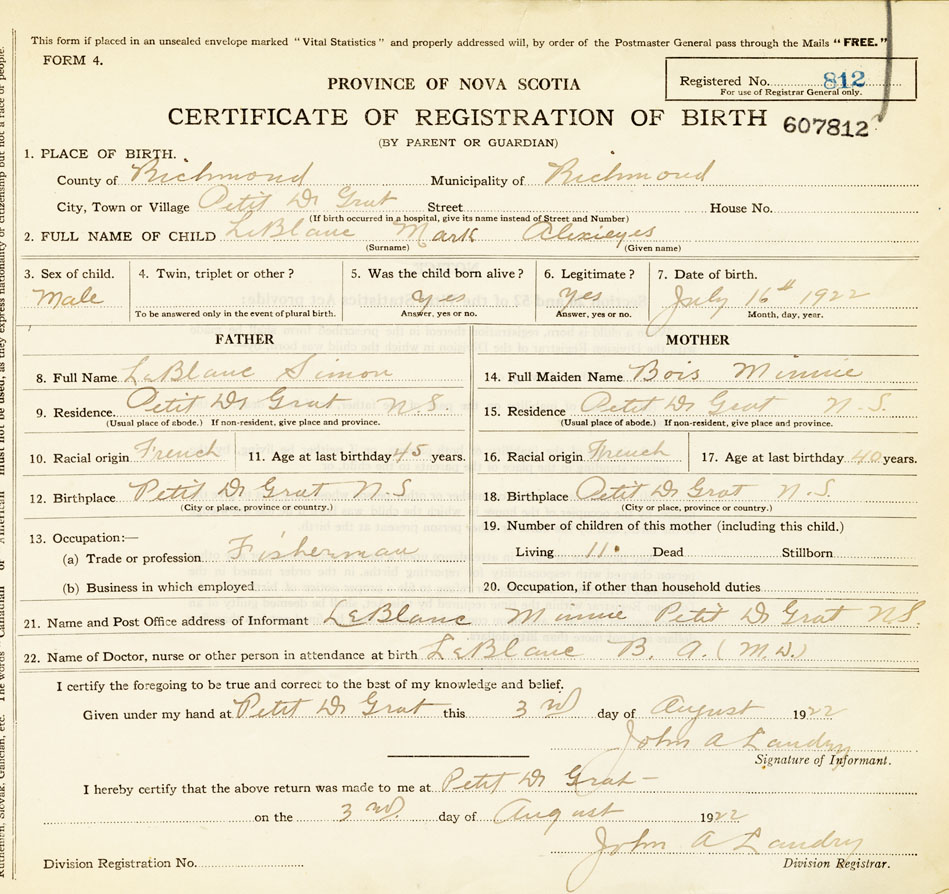 This form if placed in an unsealed envelope marked "Vital Statistics" and properly addressed will, by order of the Postmaster General pass through the Mails "FREE."
FORM 4.
Registered No. 812
For use of Registrar General only.
PROVINCE OF NOVA SCOTIA
CERTIFICATE OF REGISTRATION OF BIRTH 607812
(BY PARENT OR GUARDIAN)
1. PLACE OF BIRTH.
County of Richmond Municipality of Richmond
City, Town or Village Petit De Grat Street House No.
(If birth occurred in a hospital, give its name instead of Street and Number)
2. FULL NAME OF CHILD LeBlanc Mark
(Surname) (Given name)
3. Sex of child. 4. Twin, triplet or other? 5. Was the child born alive? 6. Legitimate? 7. Date of birth.
Male yes yes July 16th 1922
To be answered only in the event of plural birth. Answer, yes or no. Answer, yes or no. Month, day, year.
FATHER MOTHER
8. Full Name LeBlanc Simon 14. Full Maiden Name Bois Minnie
9. Residence. Petit De Grat N.S. 15. Residence Petit De Grat N.S.
(Usual place of abode.) If non-resident, give place and province. (Usual place of abode.) If non-resident, give place and province.
10. Racial origin French 11. Age at last birthday 45 years. 16. Racial origin French 17. Age at last birthday 40 years.
12. Birthplace Petit De Grat N S 18. Birthplace Petit De Grat N.S.
(City or place, province or country.) (City or place, province or country.)
13. Occupation:— 19. Number of children of this mother (including this child.)
(a) Trade or profession Fisherman Living 11 Dead Stillborn
(b) Business in which employed 20. Occupation, if other than household duties
21. Name and Post Office address of Informant LeBlanc Minnie Petit De Grat N.S.
22. Name of Doctor, nurse or other person in attendance at birth LeBlanc B. A. (M.W.)
I certify the foregoing to be true and correct to the best of my knowledge and belief.
Given under my hand at Petit De Grat this 3rd day of August 1922
John A Landry
Signature of Informant.
I hereby certify that the above return was made to me at Petit De Grat
on the 3rd day of August 1922
John A Landry
Division Registration No. Division Registrar.